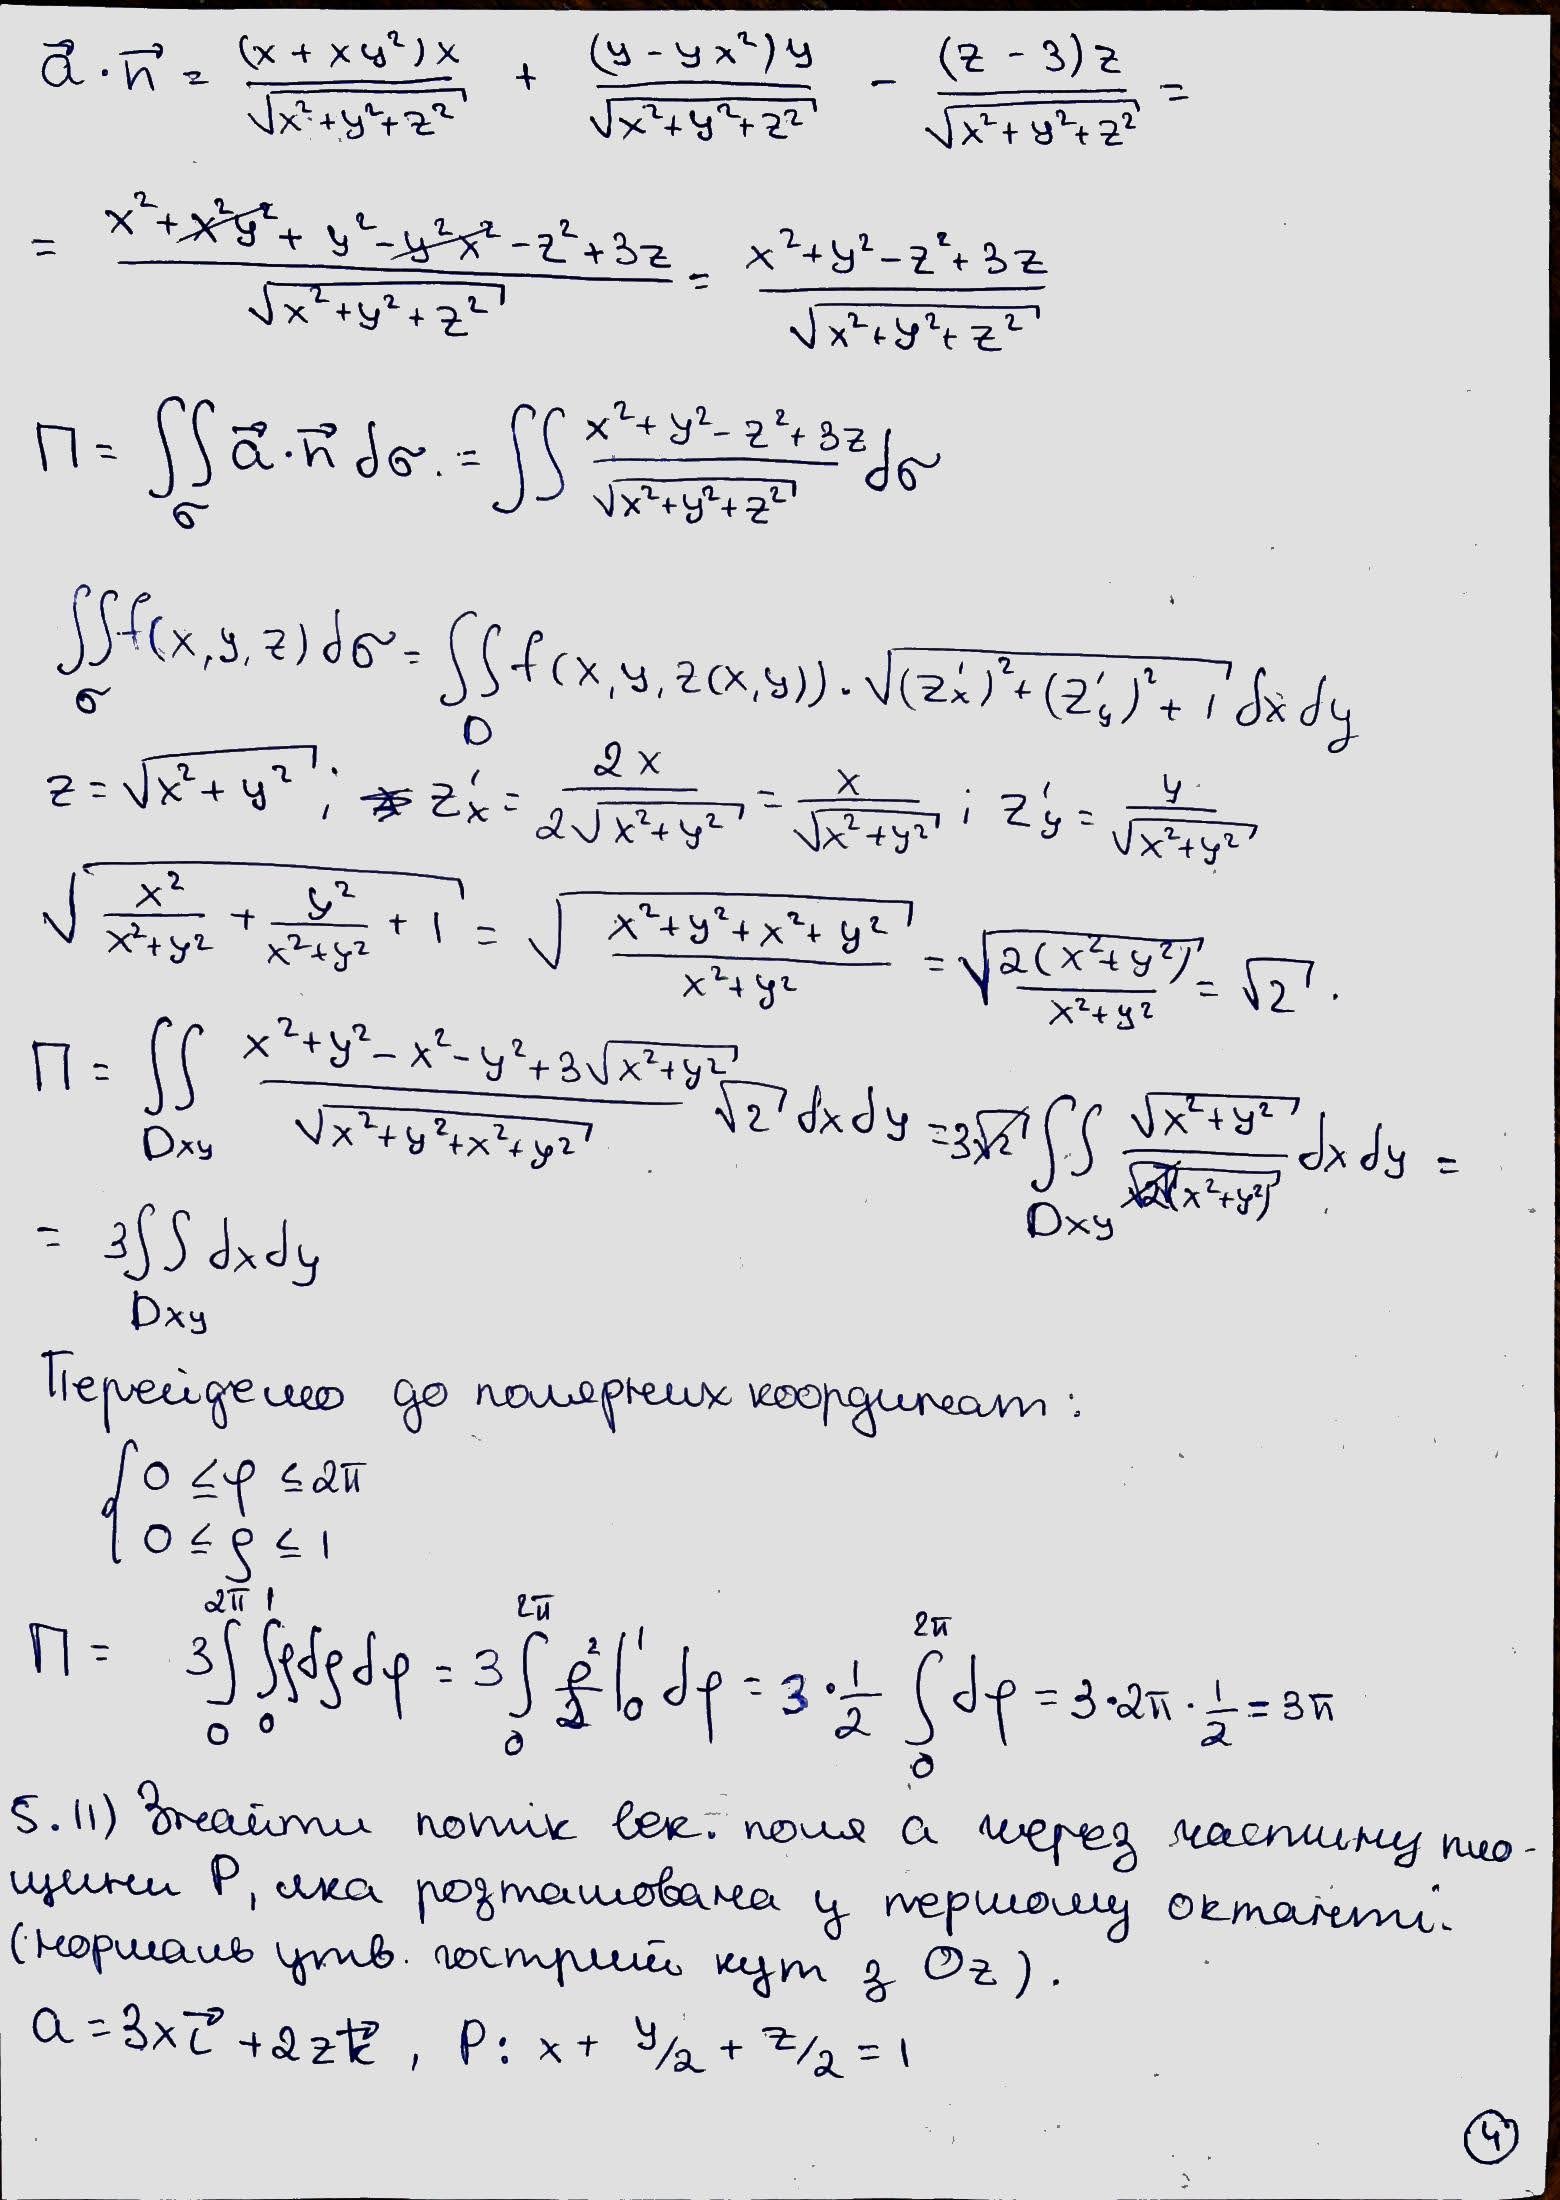 a⃗ · n⃗ = (x + xy²)x / √(x²+y²+z²) + (y - yx²)y / √(x²+y²+z²) - (z - 3)z / √(x²+y²+z²) =
= (x² + x²y² + y² - y²x² - z² + 3z) / √(x²+y²+z²) = (x²+y²-z²+3z) / √(x²+y²+z²)
П = ∬σ a⃗ · n⃗ dσ. = ∬ (x²+y²-z²+3z) / √(x²+y²+z²) dσ
∬σ f(x,y,z) dσ = ∬D f(x,y,z(x,y)) · √((z'x)²+(z'y)²+1) dx dy
z = √(x²+y²) ; z'x = 2x / 2√(x²+y²) = x / √(x²+y²) ; z'y = y / √(x²+y²)
√(x²/(x²+y²) + y²/(x²+y²) + 1) = √((x²+y²+x²+y²)/(x²+y²)) = √(2(x²+y²)/(x²+y²)) = √2 .
П = ∬Dxy (x²+y²-x²-y²+3√(x²+y²)) / √(x²+y²+x²+y²) √2 dxdy = 3√2 ∬Dxy √(x²+y²) / √(2(x²+y²)) dxdy =
= 3∬Dxy dxdy
Перейдемо до полярних координат:
{ 0 ≤ φ ≤ 2π
0 ≤ ρ ≤ 1
П = 3∫₀^2π ∫₀^1 ρdρdφ = 3∫₀^2π ρ²/2 |₀^1 dφ = 3·1/2 ∫₀^2π dφ = 3·2π·1/2 = 3π
5.11) Знайти потік век. поля a через частину пло-
щини P, яка розташована у першому октанті.
(нормаль утв. гострий кут з Oz).
a = 3xi⃗ + 2zk⃗ , P: x + y/2 + z/2 = 1
4